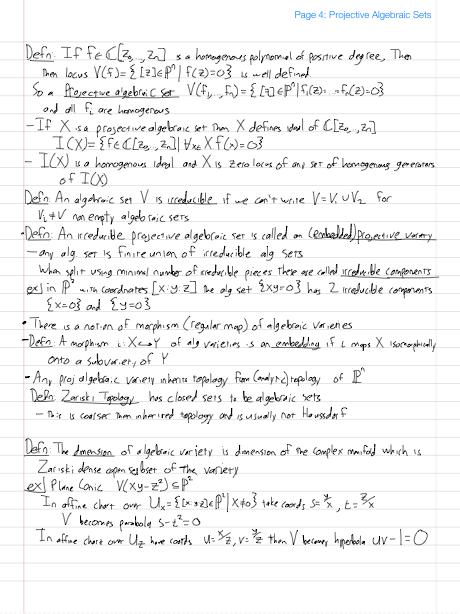 Page 4: Projective Algebraic Sets
Defn: If f∈ℂ[z₀,...,zₙ] is a homogenous polynomial of positive degree, Then
Then locus V(f)={[z]∈ℙⁿ | f(z)=0} is well defined.
So a Projective algebraic set V(f₁,...,fₙ)={[z]∈ℙⁿ|f₁(z)=...=fₙ(z)=0}
and all fᵢ are homogenous
- If X is a projective algebraic set Then X defines ideal of ℂ[z₀,...,zₙ]
I(X)={f∈ℂ[z₀,...,zₙ] | ∀x∈X f(x)=0}
- I(X) is a homogenous ideal and X is zero locus of any set of homogenous generators
of I(X)
Defn: An algebraic set V is irreducible if we can't write V=V₁∪V₂ for
Vᵢ≠V non empty algebraic sets
• Defn: An irreducible projective algebraic set is called an (embedded) projective variety
- any alg. set is finite union of irreducible alg sets
When split using minimal number of irreducible pieces These are called irreducible components
ex) in ℙ² with coordinates [x:y:z] the alg set {xy=0} has 2 irreducible components
{x=0} and {y=0}
• There is a notion of morphism (regular map) of algebraic varieties
- Defn: A morphism i: X↪Y of alg varieties is an embedding if i maps X isomorphically
onto a subvariety of Y
- Any proj algebraic variety inherits topology from (analytic) topology of ℙⁿ
Defn: Zariski Topology has closed sets to be algebraic sets
- This is coarser Then inherited topology and is usually not Hausdorff
Defn: The dimension of algebraic variety is dimension of the complex manifold which is
Zariski dense open subset of The variety
ex) Plane Conic V(xy-z²)⊆ℙ²
In affine chart over Uₓ={[x:y:z]∈ℙ² | x≠0} take coords s=y/x, t=z/x
V becomes parabola s-t²=0
In affine chart over U_z have coords u=x/z, v=y/z then V becomes hyperbola uv-1=0